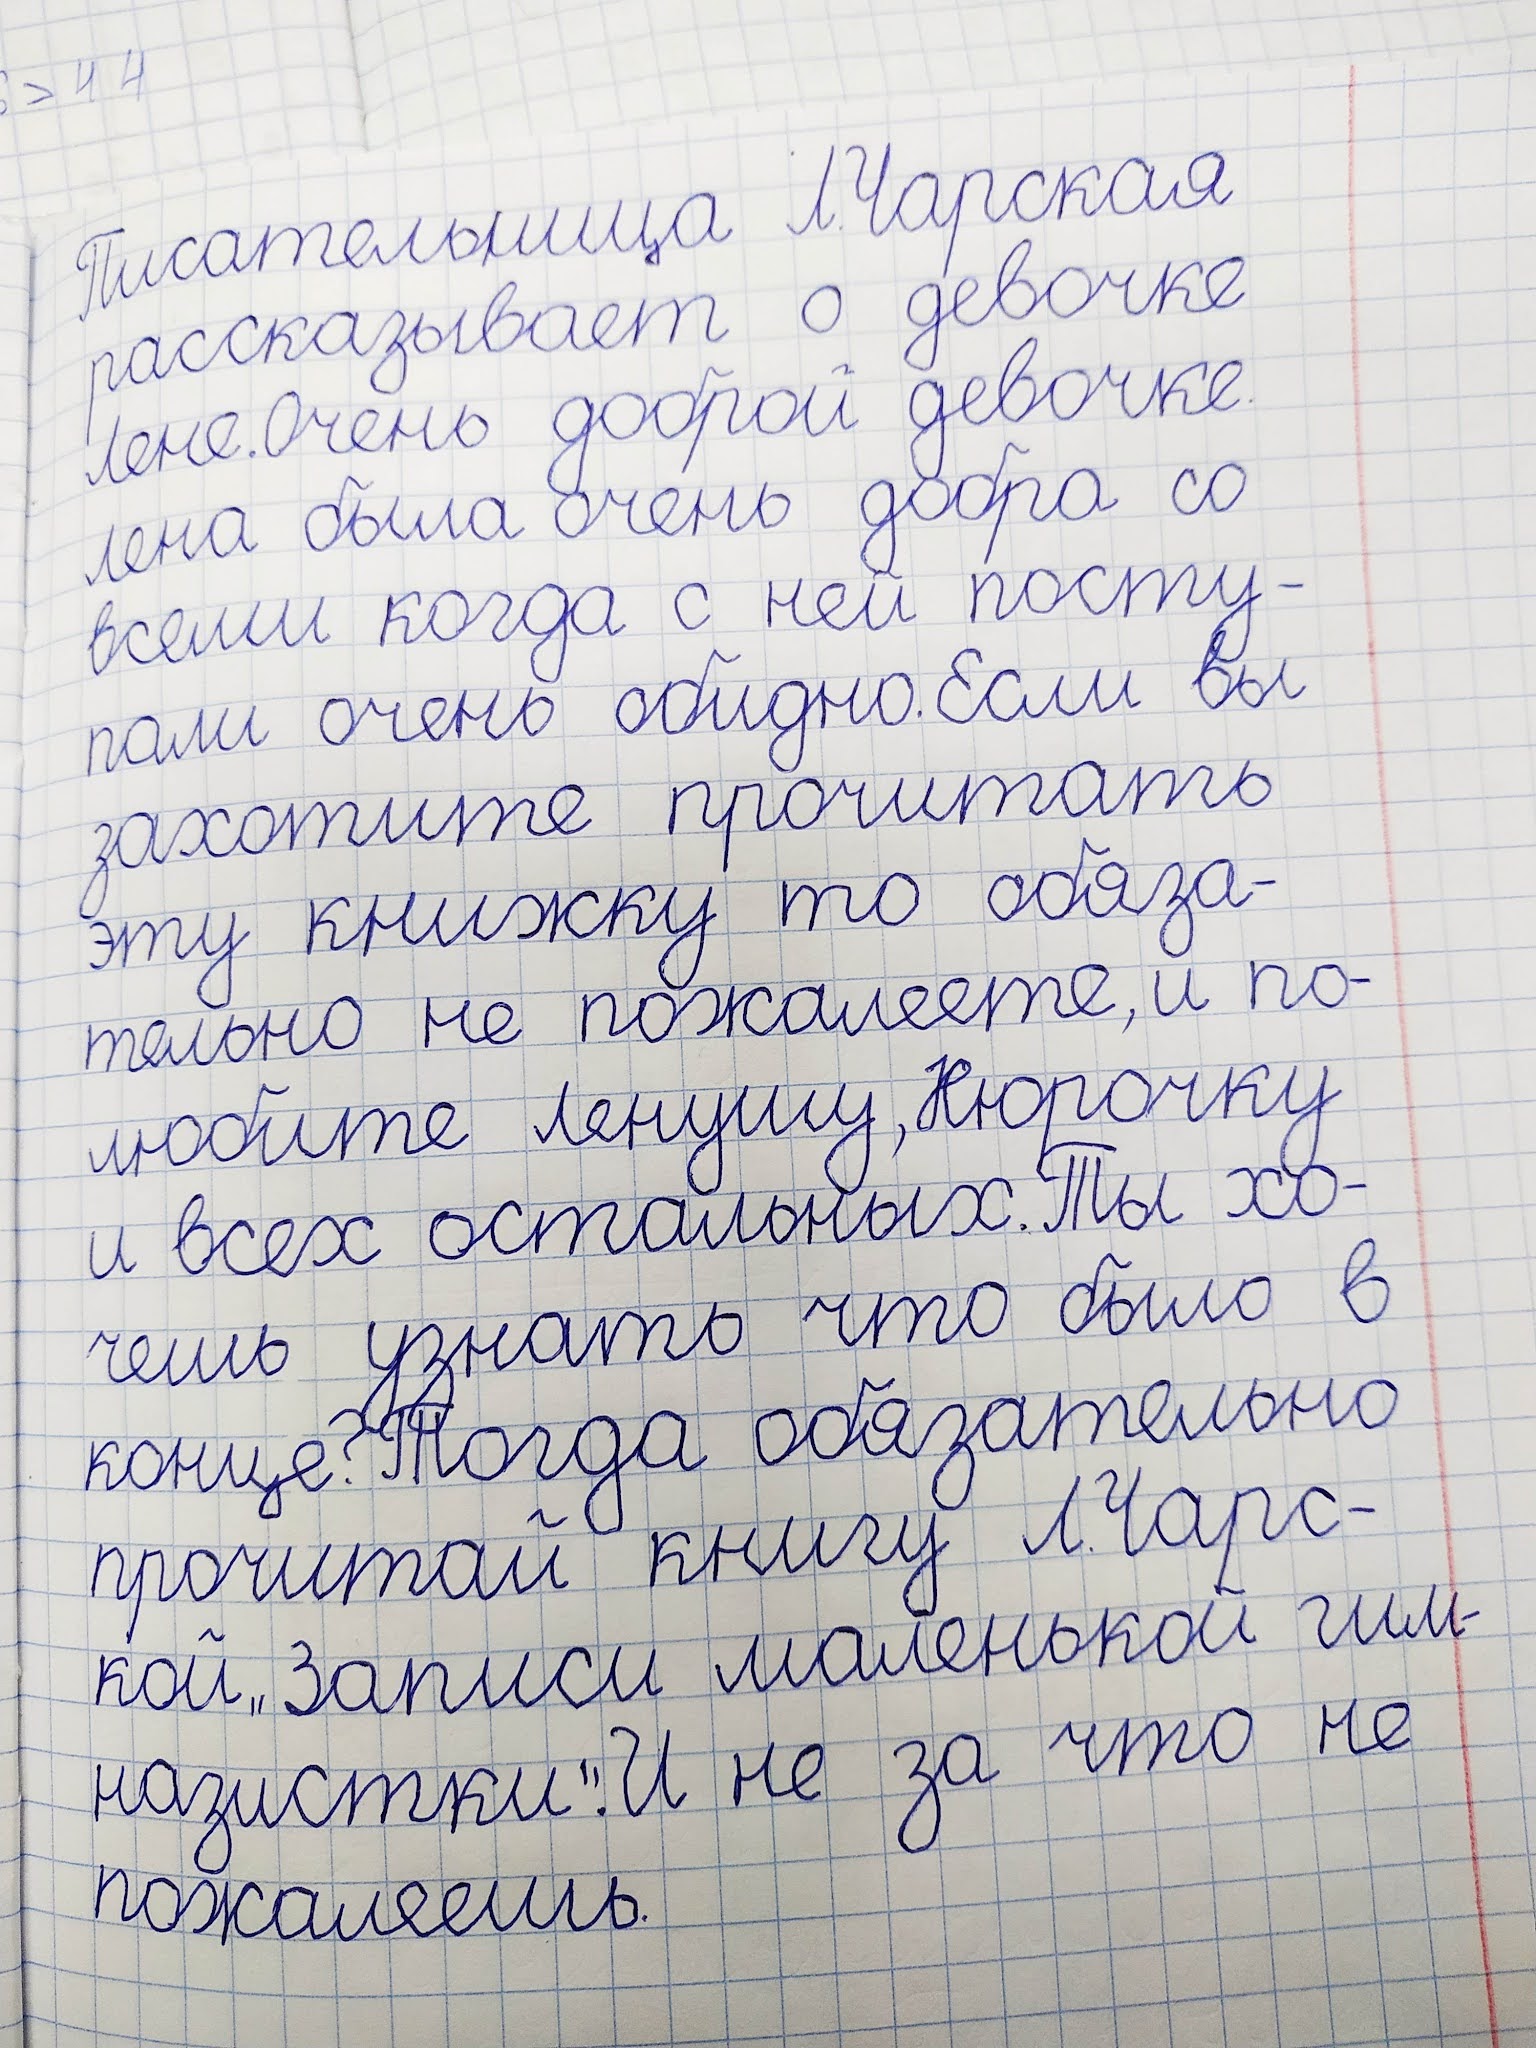 Писательница Л.Чарская
рассказывает о девочке
Лене.Очень доброй девочке.
лена была очень добра со
всеми когда с ней посту-
пали очень обидно.Если вы
захотите прочитать
эту книжку то обяза-
тельно не пожалеете,и по-
любите Ленушу,Нюрочку
и всех остальных.Ты хо-
чешь узнать что было в
конце?Тогда обязательно
прочитай книгу Л.Чарс-
кой„Записи маленькой гим-
назистки".И не за что не
пожалеешь.